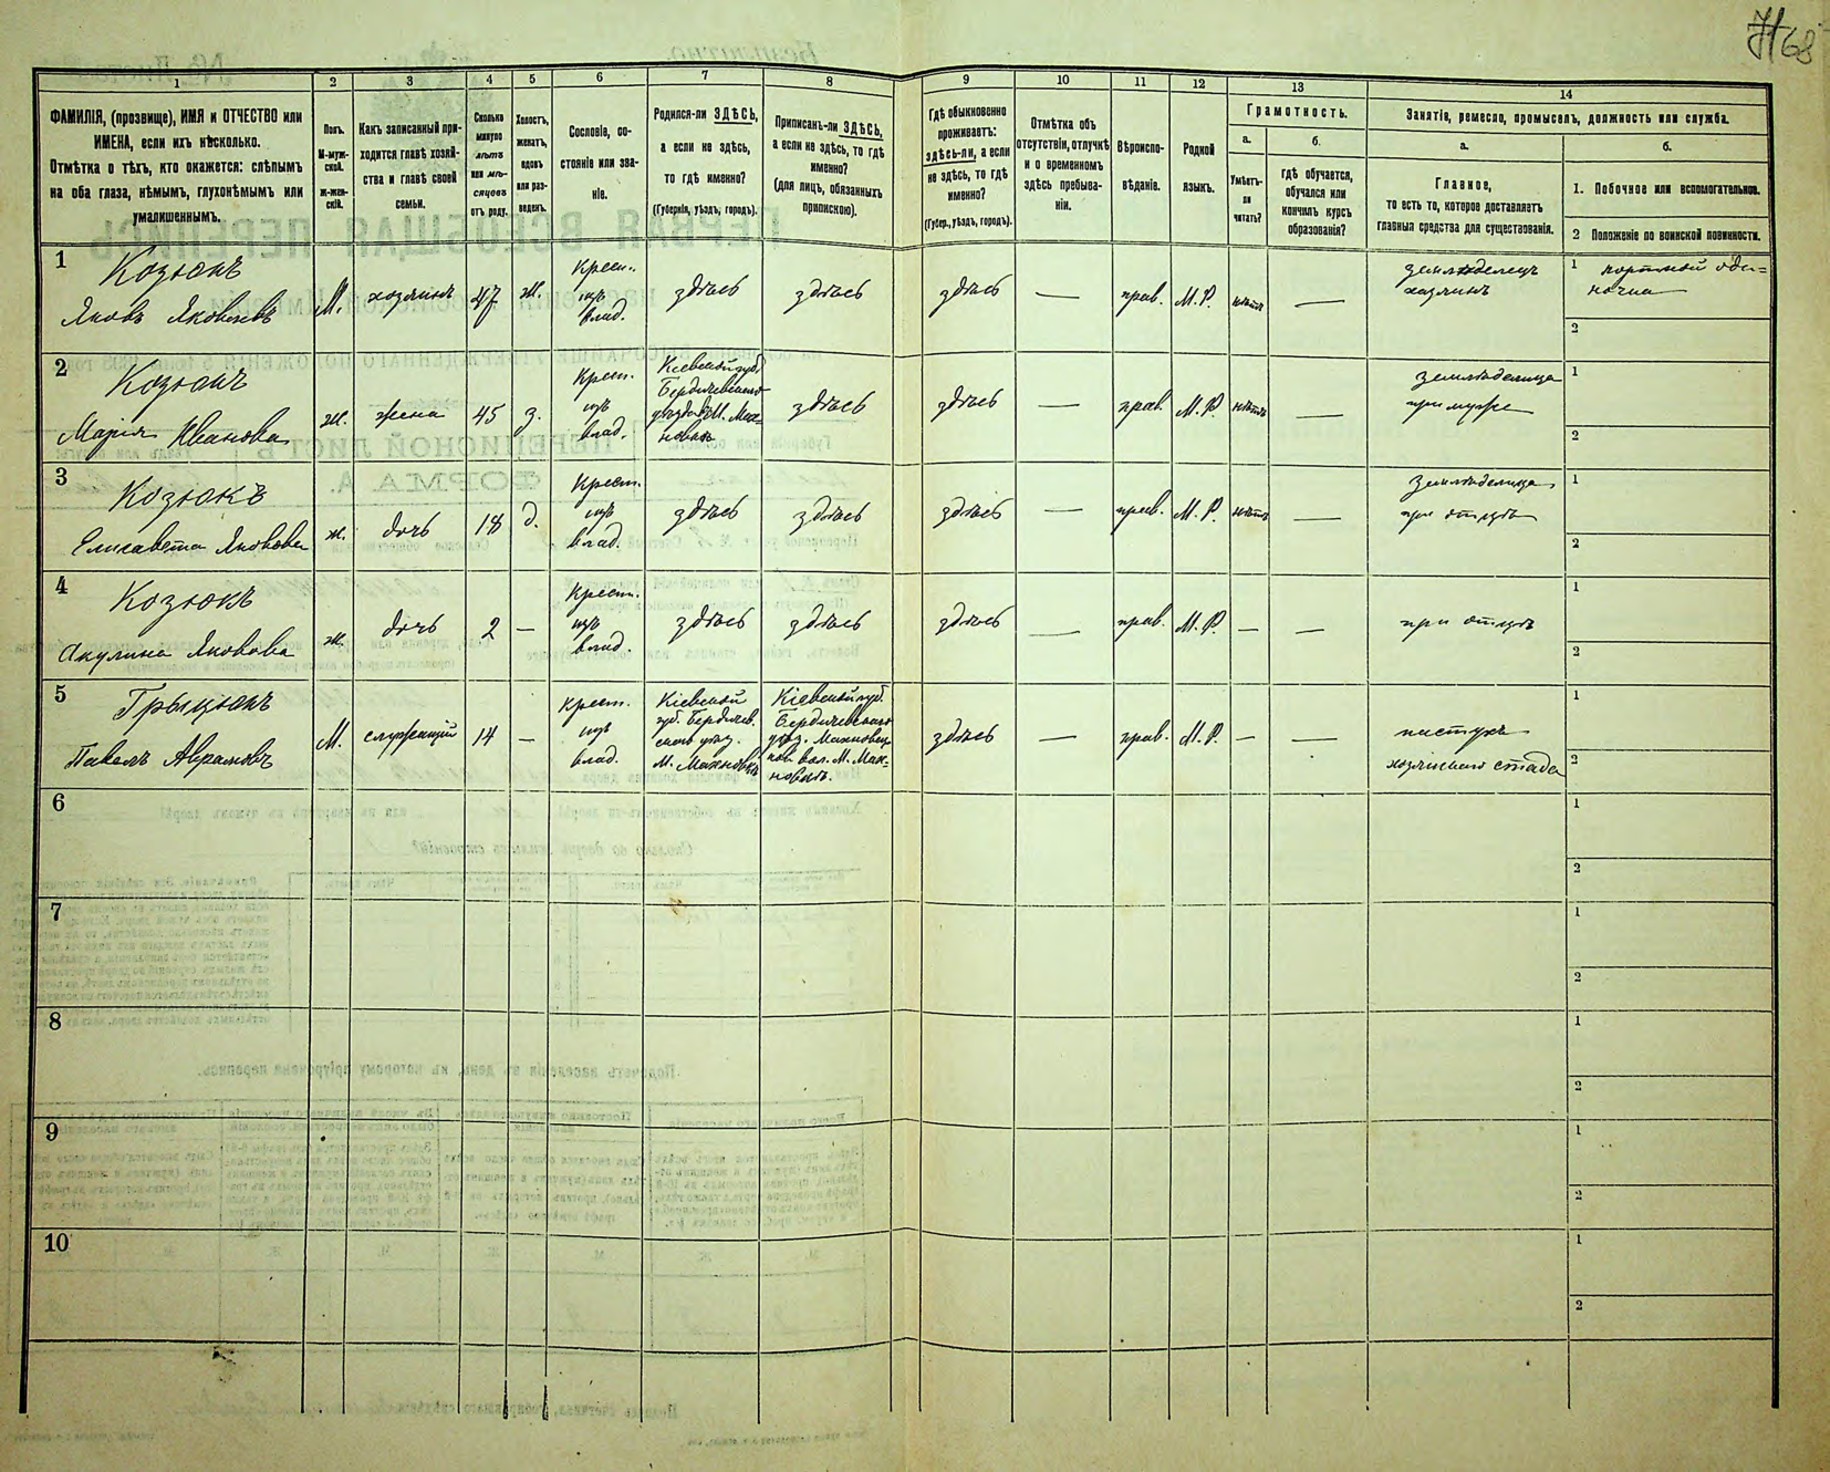 68
1
2
3
4
5
6
7
8
9
10
11
12
13
14
ФАМИЛІЯ, (прозвище), ИМЯ и ОТЧЕСТВО или
ИМЕНА, если ихъ нѣсколько.
Отмѣтка о тѣхъ, кто окажется: слѣпымъ
на оба глаза, нѣмымъ, глухонѣмымъ или
умалишеннымъ.
Полъ.
М-муж-
ской.
ж-жен-
скій.
Какъ записанный при-
ходится главѣ хозяй-
ства и главѣ своей
семьи.
Сколько
минуло
лѣтъ
или мѣ-
сяцевъ
отъ роду.
Холостъ,
женатъ,
вдовъ
или раз-
веденъ.
Сословіе, со-
стояніе или зва-
ніе.
Родился-ли ЗДѢСЬ,
а если не здѣсь,
то гдѣ именно?
(Губернія, уѣздъ, городъ).
Приписанъ-ли ЗДѢСЬ,
а если не здѣсь, то гдѣ
именно?
(для лицъ, обязанныхъ
припискою).
Гдѣ обыкновенно
проживаетъ:
здѣсь-ли, а если
не здѣсь, то гдѣ
именно?
(Губер., уѣздъ, городъ).
Отмѣтка объ
отсутствіи, отлучкѣ
и о временномъ
здѣсь пребыва-
ніи.
Вѣроиспо-
вѣданіе.
Родной
языкъ.
Грамотность.
а.
Умѣетъ-
ли
читать?
б.
гдѣ обучается,
обучался или
кончилъ курсъ
образованія?
Занятіе, ремесло, промыселъ, должность или служба.
а.
Главное,
то есть то, которое доставляетъ
главныя средства для существованія.
б.
1. Побочное или вспомогательное.
2 Положеніе по воинской повинности.
1
Козюкъ
Яковъ Яковлевъ
М.
хозяинъ
47
ж.
Крест.
изъ
влад.
здѣсь
здѣсь
здѣсь
—
прав.
М. Р.
нѣтъ
—
земледелецъ
хозяинъ
1 портной оди=
ночка
2
2
Козюкъ
Марія Иванова
ж.
жена
45
з.
Крест.
изъ
влад.
Кіевской губ.
Бердичевскаго
уѣзда М. Мах=
новка
здѣсь
здѣсь
—
прав.
М. Р.
нѣтъ
—
землѣделица
при мужѣ
1
2
3
Козюкъ
Елисавета Яковова
ж.
дочь
18
д.
Крест.
изъ
влад.
здѣсь
здѣсь
здѣсь
—
прав.
М. Р.
нѣтъ
—
землѣделица
при отцѣ
1
2
4
Козюкъ
Акулина Яковова
ж.
дочь
2
—
Крест.
изъ
влад.
здѣсь
здѣсь
здѣсь
—
прав.
М. Р.
—
—
при отцѣ
1
2
5
Грыцюкъ
Павелъ Аврамовъ
М.
служащій
14
—
Крест.
изъ
влад.
Кіевской
губ. Бердичев.
скаго уѣз.
М. Махновкѣ
Кіевской губ.
Бердичевскаго
уѣз. Махновец=
кой вол. М. Мах=
новкѣ.
здѣсь
—
прав.
М. Р.
—
—
пастухъ
хозяйскаго стада
1
2
6
1
2
7
1
2
8
1
2
9
1
2
10
1
2